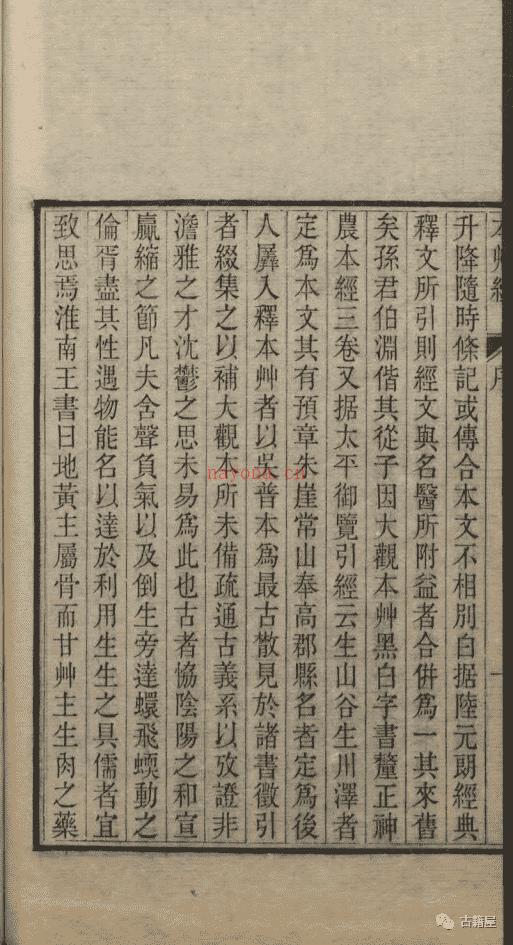 本艸經 序 一
升降隨時條記或傳合本文不相別白据陸元朗經典
釋文所引則經文與名醫所附益者合併爲一其來舊
矣孫君伯淵偕其從子因大觀本艸黑白字書釐正神
農本經三卷又据太平御覽引經云生山谷生川澤者
定爲本文其有預章朱崖常山奉高郡縣名者定爲後
人羼入釋本艸者以吳普本爲最古散見於諸書徵引
者綴集之以補大觀本所未備疏通古義系以攷證非
澹雅之才沈鬱之思未易爲此也古者協陰陽之和宣
贏縮之節凡夫含聲負氣以及倒生旁達蠉飛蝡動之
倫胥盡其性遇物能名以達於利用生生之具儒者宜
致思焉淮南王書曰地黃主屬骨而甘艸主生肉之藥
nayona.cn
古籍屋